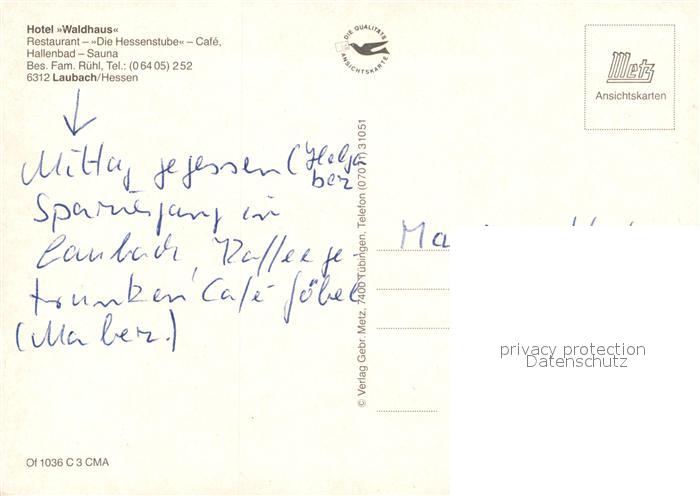 Hotel »Waldhaus«
Restaurant – »Die Hessenstube« – Café,
Hallenbad – Sauna
Bes. Fam. Rühl, Tel.: (0 64 05) 2 52
6312 Laubach/Hessen
DIE QUALITÄTS
ANSICHTSKARTE
Metz
Ansichtskarten
Mittag gegessen (Helga
bez
Spaziergang in
Laubach, Kaffee ge-
trunken Café Göbel
(Ma bez.)
© Verlag Gebr. Metz, 7400 Tübingen, Telefon (0 70 71) 3 10 51
Ma
privacy protection
Datenschutz
Of 1036 C 3 CMA